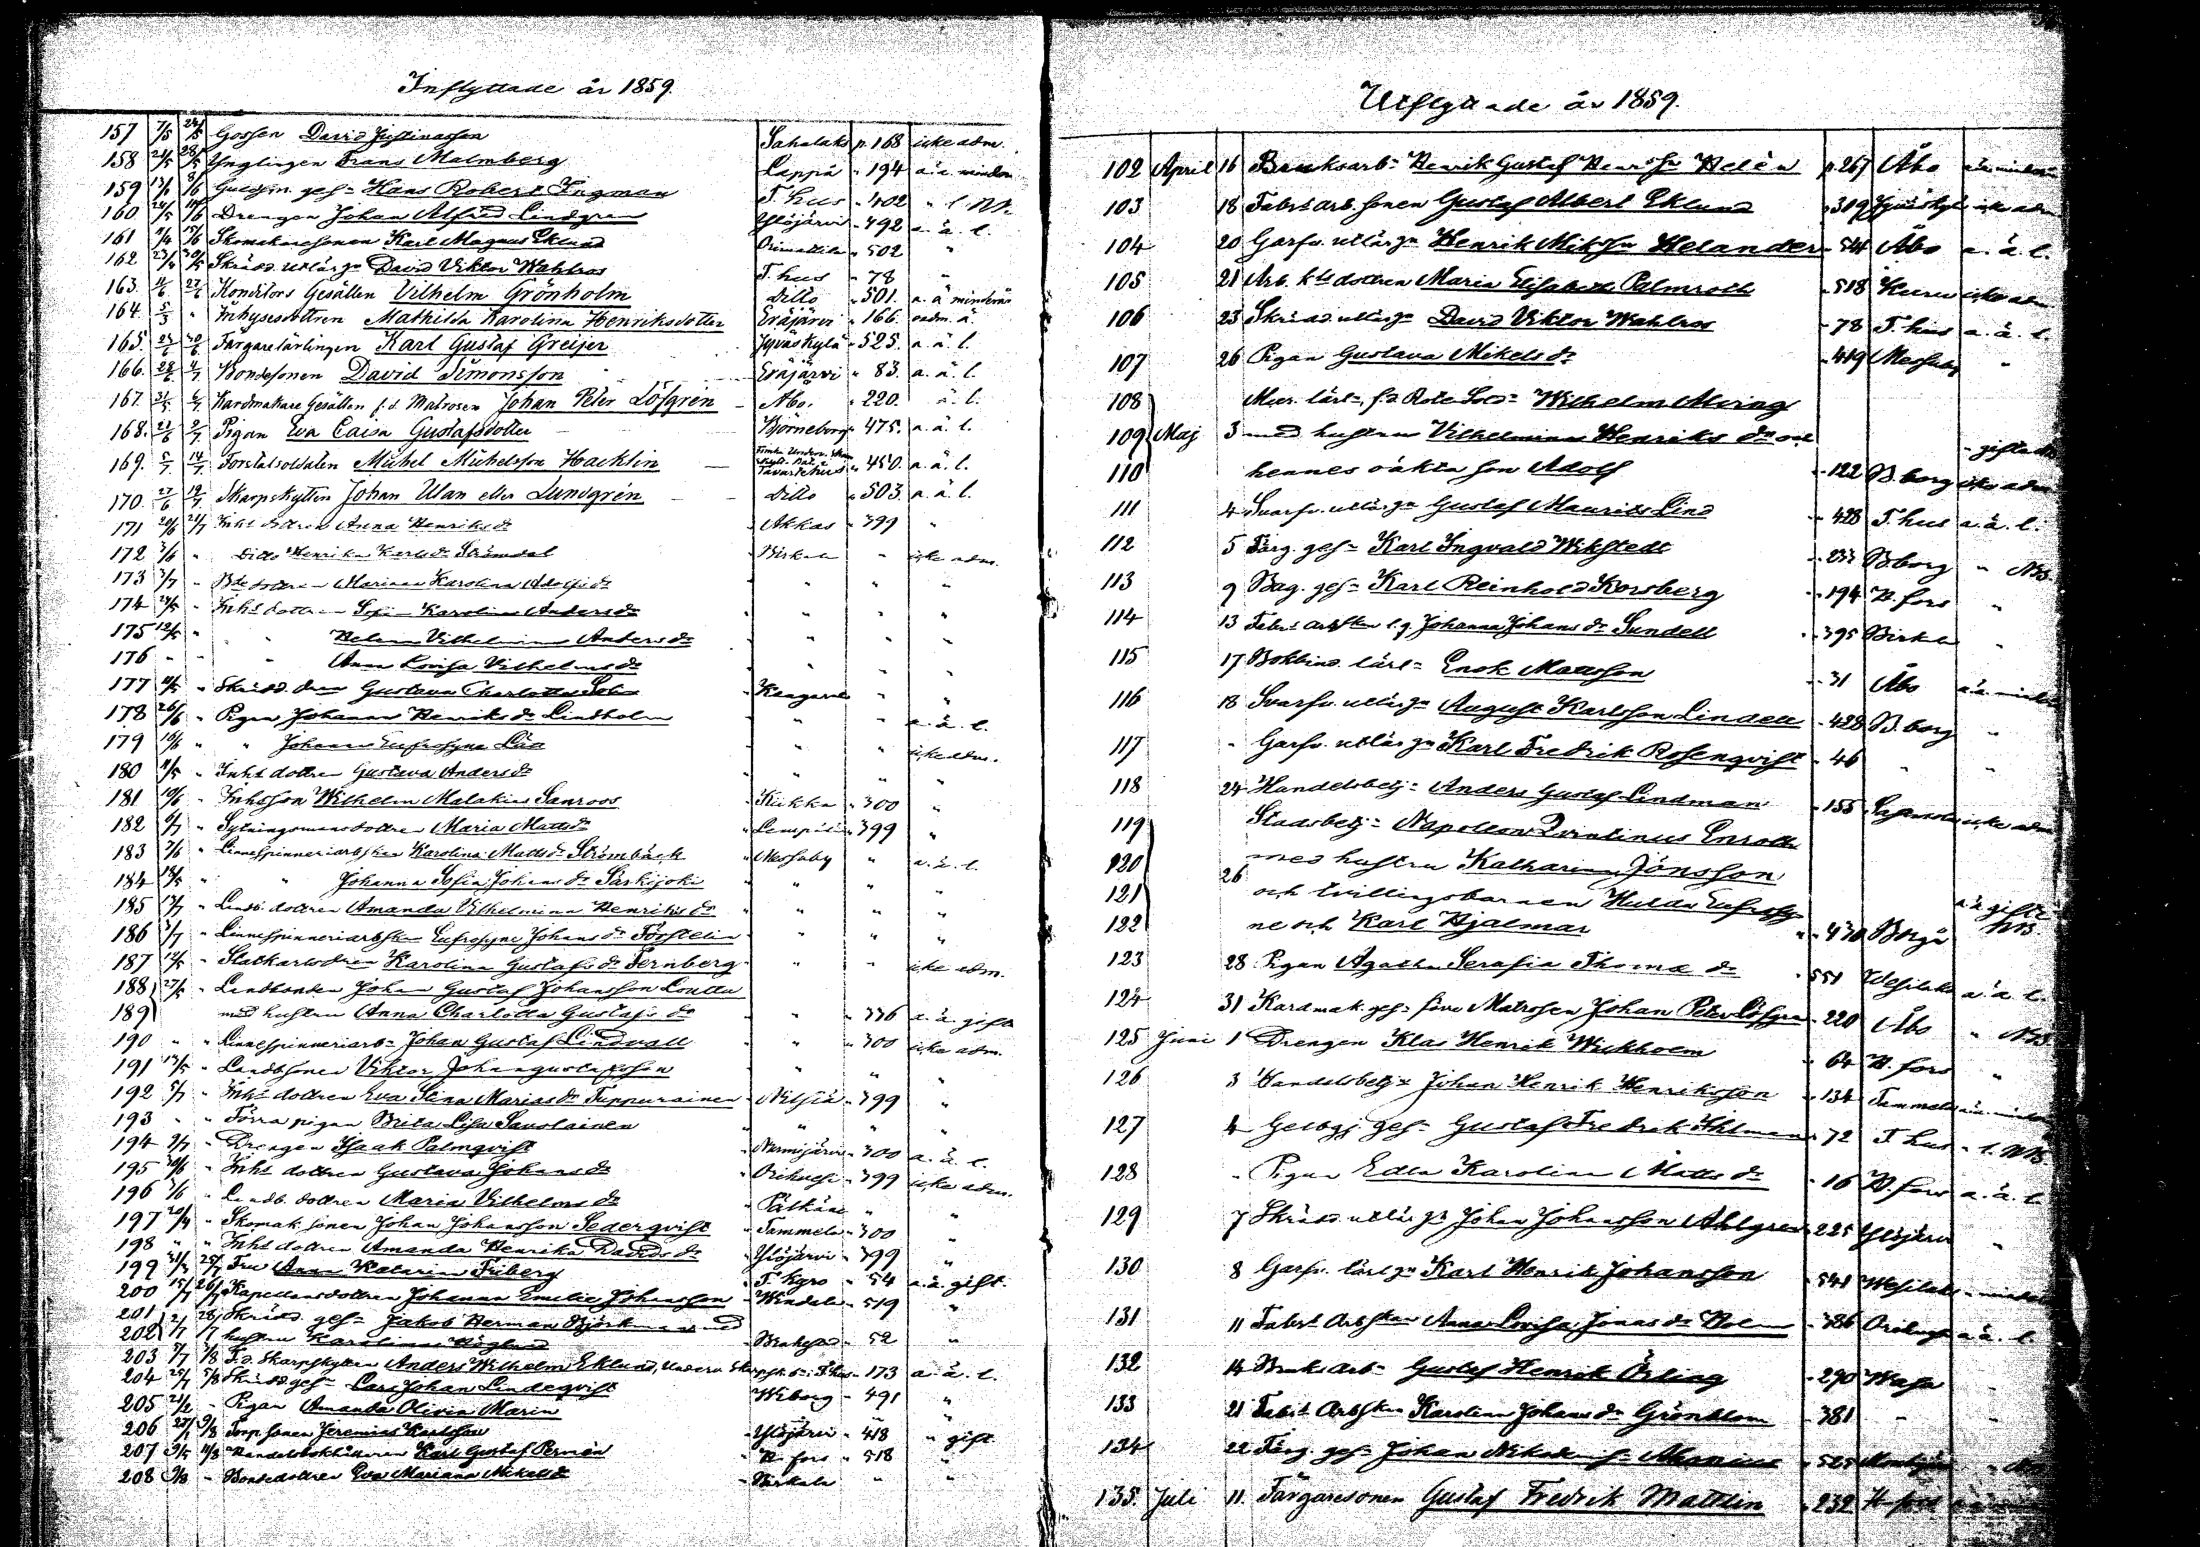 Inflyttade år 1859.
157 7/5 Gossen David Justinasson Sahalaks p. 168 icke adm.
158 Ynglingen Frans Malmberg Lappå " 194 a. ä. minderå
159 ges- Hans Robert Ingman T. hus " 402
160 Drengen Johan Alfred Lindgren Ylöjärvi " 492 a. ä. l.
161 Skomakaresonen Karl Magnus Eklund Orimattila " 502 "
162 Skrädd. utlärgn David Viktor Wahlros T. hus " 78 "
163. Konditors Gesällen Vilhelm Grönholm ditto " 501. a. ä minderå
164. 5/3 " Inhysesdottren Mathilda Karolina Henriksdotter Eräjärvi " 166. oadm. ä.
165. Färgarelärlingen Karl Gustaf Greijer Jyväskylä " 525. a. ä. l.
166. Bondesonen David Simonsson Eräjärvi " 83. a. ä. l.
167. Kardmakare Gesällen f. d. Matrosen Johan Peter Löfgrén Åbo. " 220. ä. l.
168. Pigan Eva Caisa Gustafsdotter Björneborg " 475. a. ä. l.
169. 5/7 14/7 Forstatsoldaten Michel Michelsson Hacklin Tavastehus " 450. a. ä. l.
170. 27/6 19/7 Skarpskytten Johan Ulan eller Lundgrén ditto " 503. a. ä. l.
171 Inhs dottren Anna Henriksdr Akkas " 399 "
172 " Ditto Henrika Karlsdr Strömdal Birkala " icke adm.
173 " dottren Mariana Karolina Adolfsdr " " "
174 " Inhs dottren Sofia Karolina Andersdr " " "
175 " " Helena Vilhelmina Andersdr " " "
176 " " " Anna Lovisa Vilhelmsdr " " "
177 " Skrädd. dren Gustava Charlotta Kangasala " "
178 " Pigan Johanna Henriksdr Lindholm " " a. ä. l.
179 " " Johanna Eufrosyna " " icke adm.
180 " Inhs dottren Gustava Andersdr " " "
181 " Inhsson Wilhelm Malakias Sanroos Kiikka " 300 "
182 " Sytningsmansdottren Maria Mattsdr Lempäälä " 399 "
183 " Linnespinneriarbskan Karolina Mattsdr Strömbäck Messuby " a. ä. l.
184 " " Johanna Sofia Johansdr Särkijoki " " "
185 " Landb. dottren Amanda Vilhelmina Henriksdr " " "
186 " Linnespinneriarbskan Eufrosyne Johansdr Törstelin " " "
187 " Karolina Gustafsdr Fernberg " " icke adm.
188 " Landbonden Johan Gustaf Johansson
189 med hustru Anna Charlotta Gustafsdr " 336 a. ä. gift
190 " " Linnespinneriarb- Johan Gustaf Lindvall " " 300 icke adm.
191 " Landbsonen Viktor Johangustafsson " " "
192 " Inhs dottren Eva Stina Mariasdr Tuppurainen Nilsiä " 399 "
193 " " Förra pigan Brita Lisa Savolainen " " "
194 " Drengen Isaak Palmqvist Nurmijärvi " 300 a. ä. l.
195 " Inhs dottren Gustava Johansdr Orihvesi " 399 icke adm.
196 " Landb. dottren Maria Vilhelmsdr Pälkäne " "
197 " Skomak. sonen Johan Johansson Sederqvist Tammela " 300 "
198 " " Inhs dottren Amanda Henrika Davidsdr Ylöjärvi " 399 "
199 Fru Anna Katarina Friberg T. Kyro " 54 a. ä. gift.
200 Kapellansdottren Johanna Emilie Johansson Windala " 519 "
201 Skrädd. ges- Jakob Herman Björkman med
202 hustru Karolina Höglund Brahestad " 52 "
203 F. d. Skarpskytten Anders Wilhelm Eklund, " 173 a. ä. l.
204 Skrädd ges- Lars Johan Lindeqvist Wiborg " 491 "
205 " Pigan Amanda Olivia Marin " " "
206 Torp. sonen Jeremias Karlsson Ylöjärvi " 418 " gift.
207 Handelsbokhållaren Karl Gustaf Pernén H. fors " 518 "
208 " Bondedottren Eva Mariana Mikelsdr Birkala " "
Utflyttade år 1859.
102 April 16 Bruksarb- Henrik Gustaf Henrsn Helén p. 267 Åbo a. ä. minderå
103 18 Fabrs arb. sonen Gustaf Albert Eklund " 319 Jyväskylä icke adm
104 20 Garfv. utlärgn Henrik Mikssn Helander " 54 Åbo a. ä. l.
105 21 Arb. k dottren Maria Elisabeth Palmroth " 518 Keuru icke adm
106 23 Skrädd. utlärgn David Viktor Wahlros " 78 T. hus a. ä. l.
107 26 Pigan Gustava Mikelsdr " 419 Messuby "
108 Mur. lärl- f. d. Rote Sold- Wilhelm Alving
109 Maj 3 med hustrun Vilhelmina Henriksdr och " gifta
110 hennes oäkta son Adolf " 122 B. borg icke adm
111 4 Svarfv. utlärgn Gustaf Maurits Lind " 428 T. hus a. ä. l.
112 5 Färg. ges- Karl Ingvald Wikstedt " 233 B. borg " NB.
113 9 Bag. ges- Karl Reinhold Korsberg " 194 H. fors "
114 13 Fabrs arbskan l. g. Johanna Johansdr Sundell " 395 Birkala "
115 17 Bokbind. lärl- Enok Mattsson " 31 Åbo a. ä. minderå
116 18 Svarfv. utlärgn August Karlsson Lindell " 428 B. borg "
117 " Garfv. utlärgn Karl Fredrik Rosenqvist " 46 " "
118 24 Handelsbetj- Anders Gustaf Lindman " 155 icke adm
119 Stadsbetj- Napoleon Qvintinus Enroth
120 26 med hustru Katharina Jönsson
121 och tvillingsbarnen Hulda Eufrosy
122 ne och Karl Hjalmar " 430 Borgå a. ä. gifte NB
123 28 Pigan Agatha Serafia Thomædr " 551 Wesilaks a. ä. l.
124 31 Kardmak. ges- förre Matrosen Johan Peter Löfgren " 220 Åbo " NB.
125 Juni 1 Drengen Klas Henrik Wickholm " 64 H. fors "
126 3 Handelsbetj- Johan Henrik Henriksson " 134 Tammela a. ä. minderå
127 4 ges- Gustaf Fredrik Ihlman " 72 T. hus " l. NB.
128 " Pigan Edla Karolina Mattsdr " 16 H. fors a. ä. l.
129 7 Skrädd. utlärgn Johan Johansson Ahlgren " 225 Ylöjärvi "
130 8 Garfv. lärlgn Karl Henrik Johansson " 541 Wesilaks " minderå
131 11 Fabrs Arbskan Anna Lovisa Jonasdr Holm " 386 Orihvesi a. ä. l.
132 14 Bruks Arb- Gustaf Henrik Örling " 290 Wasa "
133 21 Fabrs Arbskan Karolina Johansdr Grönblom " 381 " "
134 22 Färg. ges- Johan " 525
135. Juli 11. Färgaresonen Gustaf Fredrik Mattlin " 232 H. fors